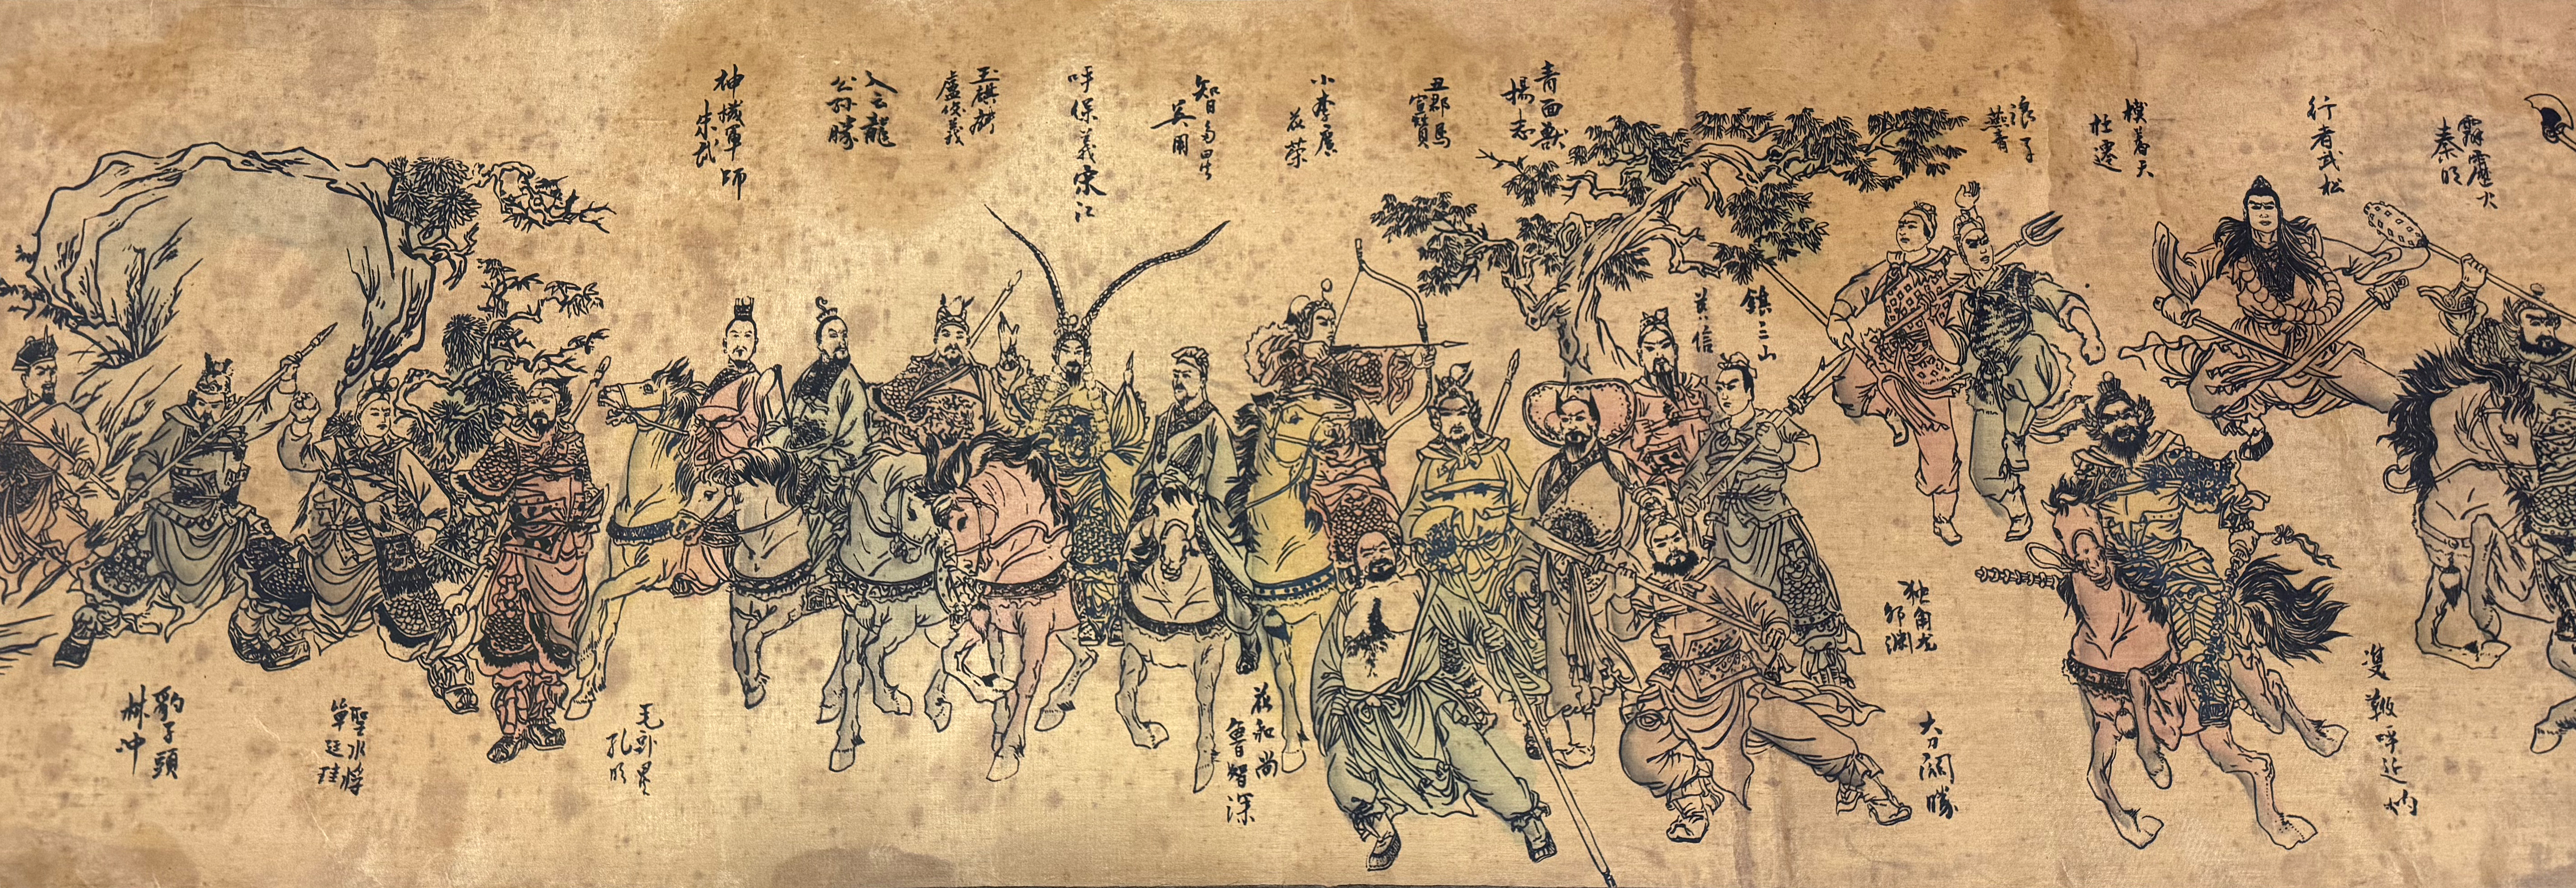 霹靂火
秦明
行者武松
摸着天
杜遷
浪子
燕青
鎮三山
黄信
青面獸
楊志
丑郡馬
宣贊
小李廣
花荣
智多星
吴用
呼保義宋江
玉麒麟
盧俊義
入云龍
公孙勝
神機軍師
朱武
雙鞭呼延灼
大刀関勝
独角龙
邹渊
花和尚
魯智深
毛头星
孔明
聖水将
單廷珪
豹子頭
林冲